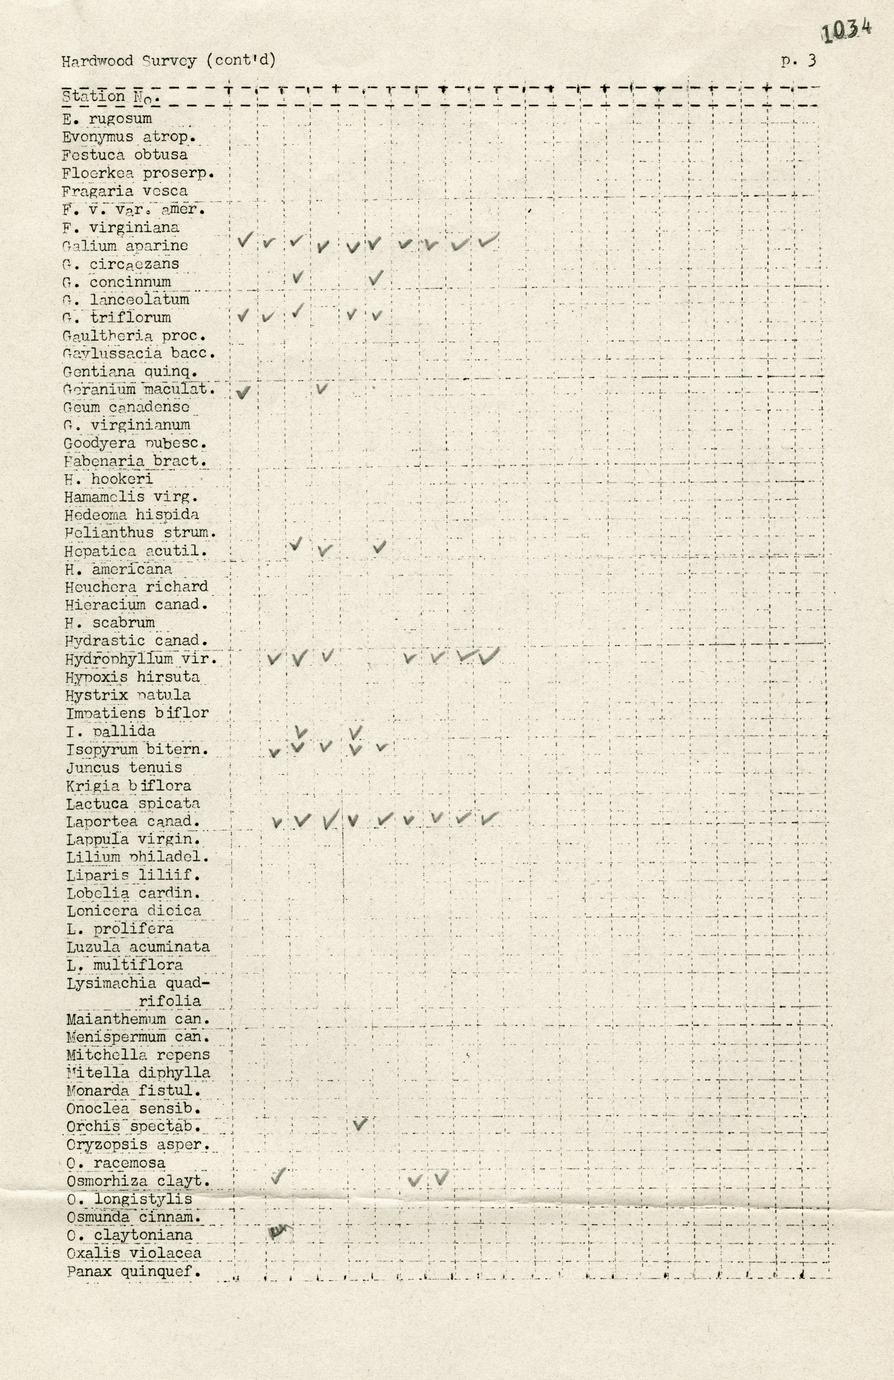 1034
Hardwood Survey (cont'd) p. 3
Station No.
E. rugosum
Evonymus atrop.
Festuca obtusa
Floerkea proserp.
Fragaria vesca
F. v. var. amer.
F. virginiana
Galium aparine ✓ ✓ ✓ ✓ ✓ ✓ ✓ ✓ ✓ ✓
G. circaezans
G. concinnum ✓ ✓
G. lanceolatum
G. triflorum ✓ ✓ ✓ ✓ ✓
Gaultheria proc.
Gaylussacia bacc.
Gentiana quinq.
Geranium maculat. ✓ ✓
Geum canadense
G. virginianum
Goodyera pubesc.
Habenaria bract.
H. hookeri
Hamamelis virg.
Hedeoma hispida
Helianthus strum.
Hepatica acutil. ✓ ✓ ✓
H. americana
Heuchera richard
Hieracium canad.
H. scabrum
Hydrastic canad.
Hydrophyllum vir. ✓ ✓ ✓ ✓ ✓ ✓ ✓
Hypoxis hirsuta
Hystrix patula
Impatiens biflor
I. pallida ✓ ✓
Isopyrum bitern. ✓ ✓ ✓ ✓ ✓
Juncus tenuis
Krigia biflora
Lactuca spicata
Laportea canad. ✓ ✓ ✓ ✓ ✓ ✓ ✓ ✓ ✓
Lappula virgin.
Lilium philadel.
Liparis liliif.
Lobelia cardin.
Lonicera dioica
L. prolifera
Luzula acuminata
L. multiflora
Lysimachia quad-
rifolia
Maianthemum can.
Menispermum can.
Mitchella repens
Mitella diphylla
Monarda fistul.
Onoclea sensib.
Orchis spectab. ✓
Oryzopsis asper.
O. racemosa
Osmorhiza clayt. ✓ ✓ ✓
O. longistylis
Osmunda cinnam.
O. claytoniana
Oxalis violacea
Panax quinquef.